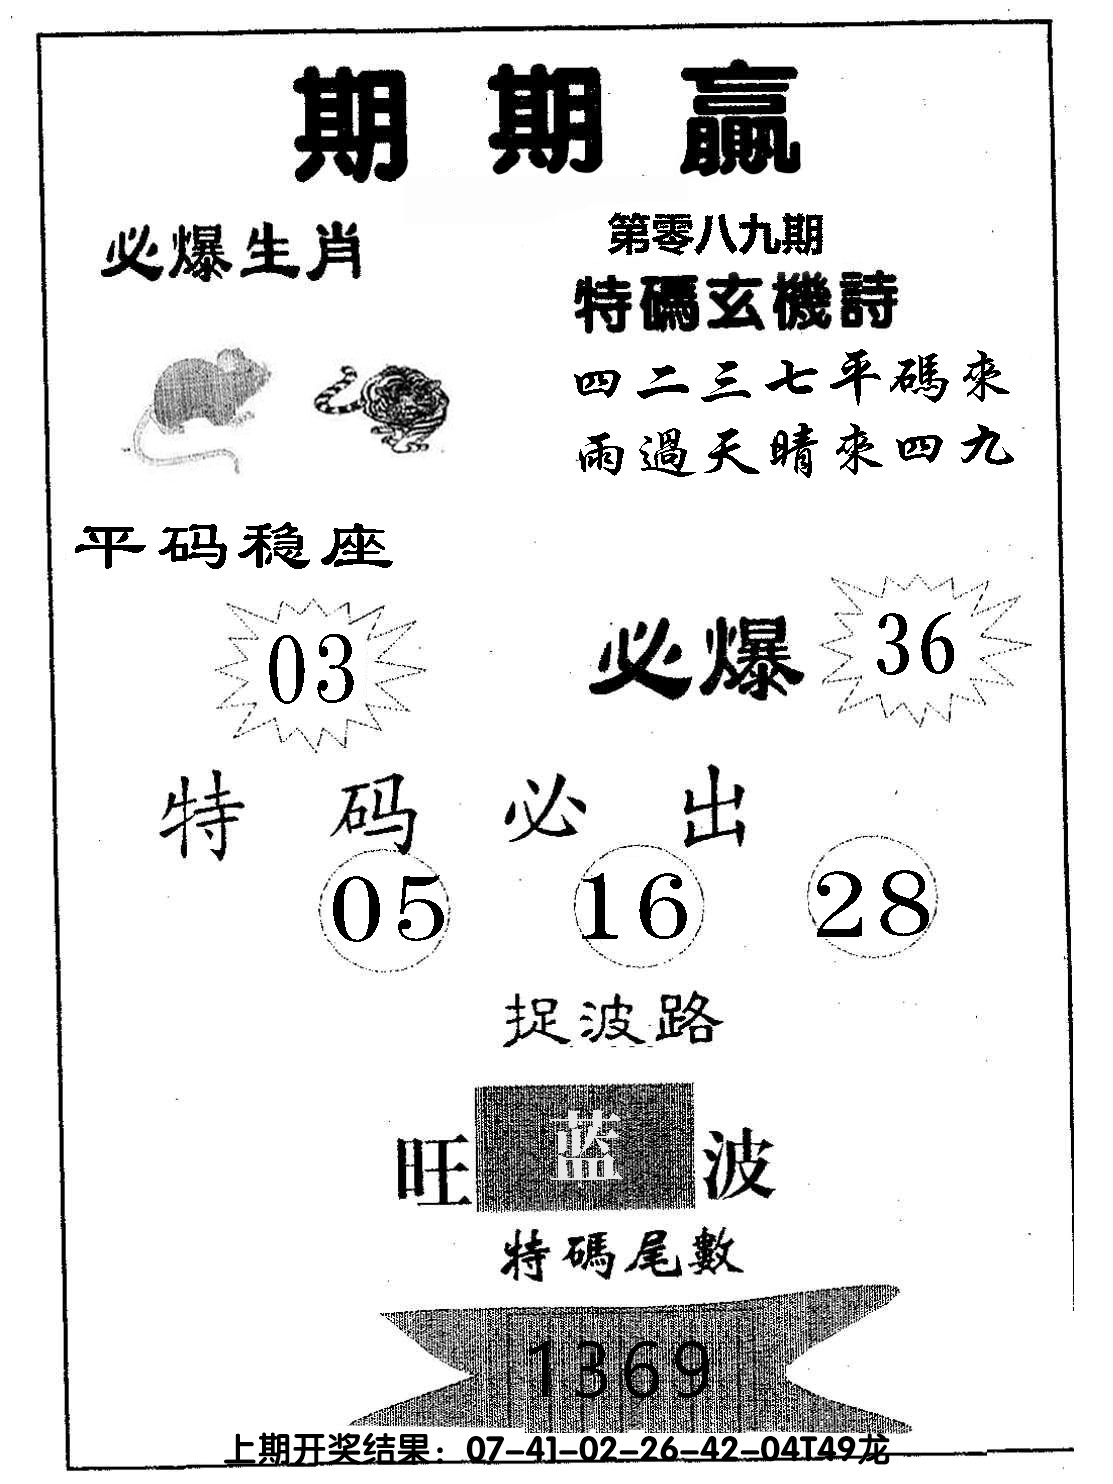 期期贏
必爆生肖
第零八九期
特碼玄機詩
四二三七平碼來
雨過天晴來四九
平码稳座
03
必爆 36
特码必出
05 16 28
捉波路
旺 蓝 波
特碼尾數
1369
上期开奖结果：07-41-02-26-42-04T49龙